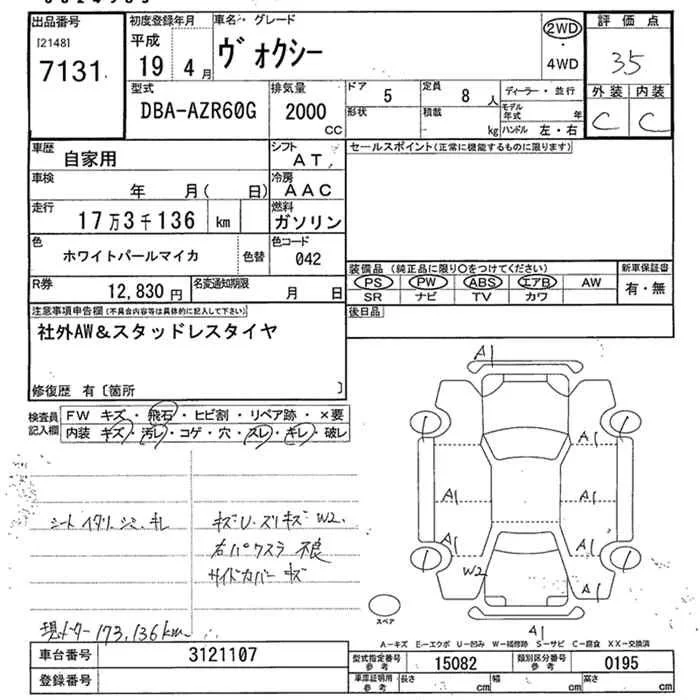 出品番号
[2148]
7131
初度登録年月
平成
19 4月
車名・グレード
ヴォクシー
2WD
・
4WD
評価点
35
外装 内装
C C
型式
DBA-AZR60G
排気量
2000
CC
ドア 5
定員 8人
形状
積載 - kg
ディーラー・並行
モデル年式 年
ハンドル 左・右
車歴 自家用
シフト AT
セールスポイント(正常に機能するものに限ります)
車検 年 月( 日)
冷房 AAC
走行 17万3千136 km
燃料 ガソリン
色 ホワイトパールマイカ
色替
色コード 042
R券 12,830円
名変通知期限 月 日
装備品 (純正品に限り○をつけてください)
新車保証書
PS PW ABS エアB AW
有・無
SR ナビ TV カワ
注意事項申告欄(不具合内容等は具体的に記入して下さい)
後日品
社外AW&スタッドレスタイヤ
修復歴 有〔箇所 〕
検査員記入欄
FW キズ・飛石・ヒビ割・リペア跡・×要
内装 キズ・汚レ・コゲ・穴・スレ・キレ・破レ
シート イタリ シミ キレ
キズU ズリキズ W2.
右バクスラ 不良
サイドカバー キズ
現メーター 173,136km
A1
A1
A1
A1
A1
A1
A1
W2
A1
スペア
A-キズ E-エクボ U-凹み W-補修跡 S-サビ C-腐食 XX-交換済
車台番号 3121107
型式指定番号 参考 15082
類別区分番号 参考 0195
登録番号
車庫証明用 参考
長さ cm
幅 cm
高さ cm